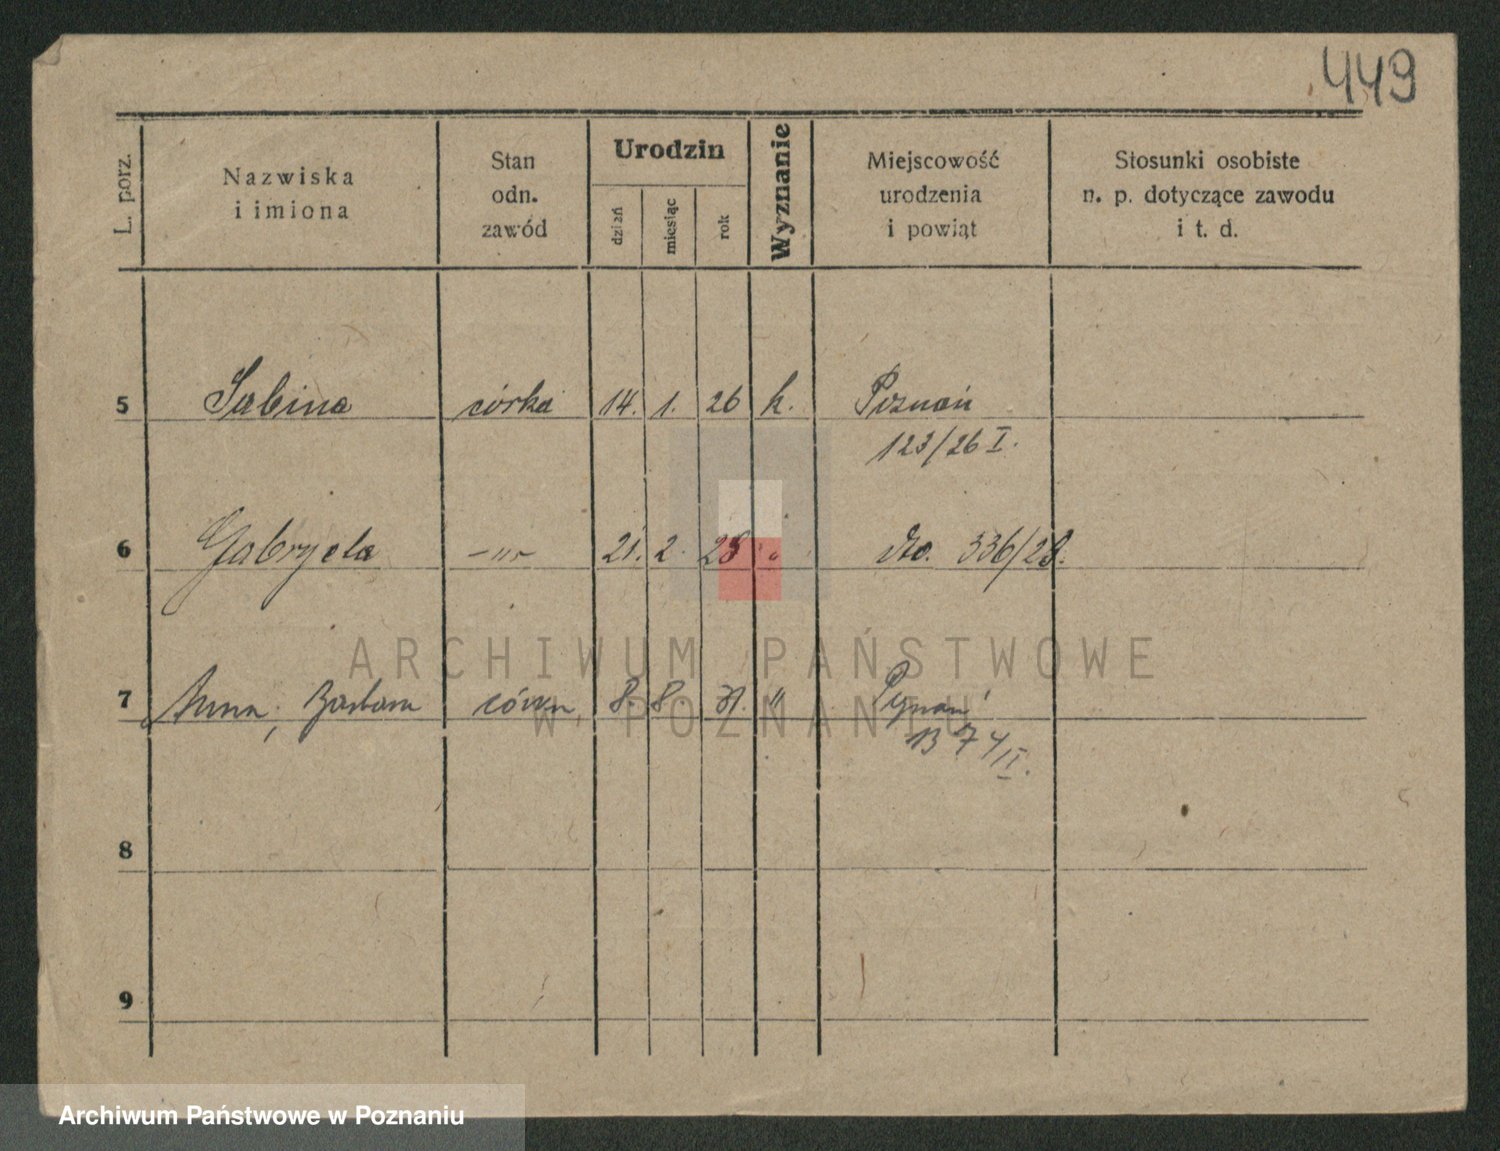 449
L. porz.
Nazwiska
i imiona
Stan
odn.
zawód
Urodzin
dzień
miesiąc
rok
Wyznanie
Miejscowość
urodzenia
i powiat
Stosunki osobiste
n. p. dotyczące zawodu
i t. d.
5 Sabina córka 14. 1. 26 k. Poznań
123/26 I.
6 Gabryela -"- 21. 2. 28 " dto. 336/28.
ARCHIWUM PAŃSTWOWE
W POZNANIU
7 Anna, Barbara córka 8. 8. 31. " Poznań
1374/II.
8
9
Archiwum Państwowe w Poznaniu